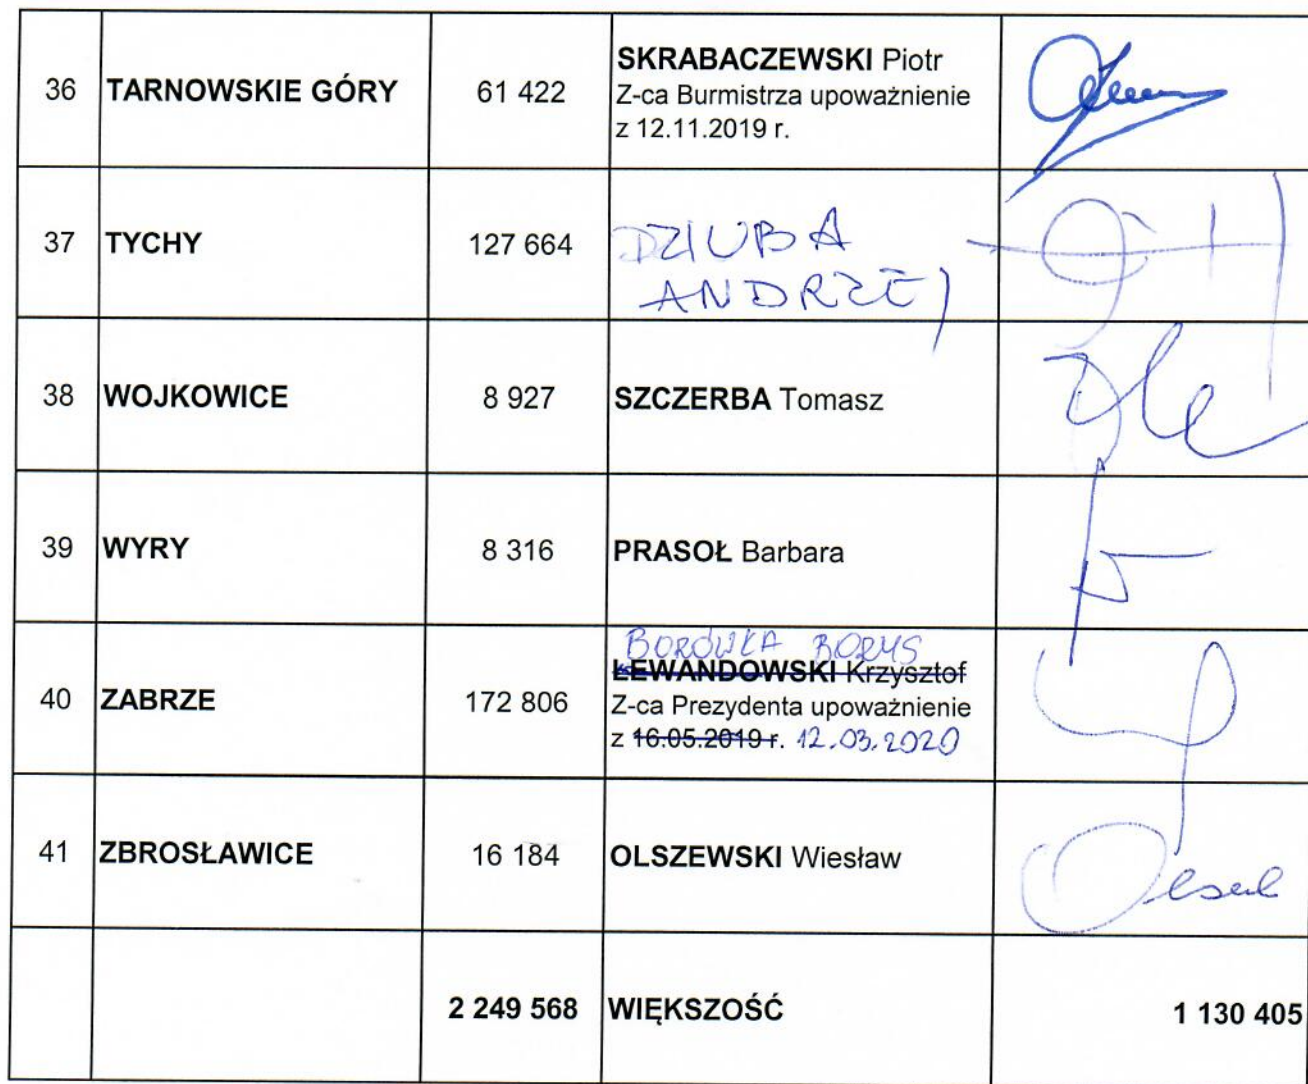 36 TARNOWSKIE GÓRY 61 422 SKRABACZEWSKI Piotr
Z-ca Burmistrza upoważnienie
z 12.11.2019 r.
37 TYCHY 127 664 DZIUBA
ANDRZEJ
38 WOJKOWICE 8 927 SZCZERBA Tomasz
39 WYRY 8 316 PRASOŁ Barbara
BORÓWKA BORYS
40 ZABRZE 172 806 ŁEWANDOWSKI Krzysztof
Z-ca Prezydenta upoważnienie
z 16.05.2019 r. 12.03.2020
41 ZBROSŁAWICE 16 184 OLSZEWSKI Wiesław
2 249 568 WIĘKSZOŚĆ 1 130 405